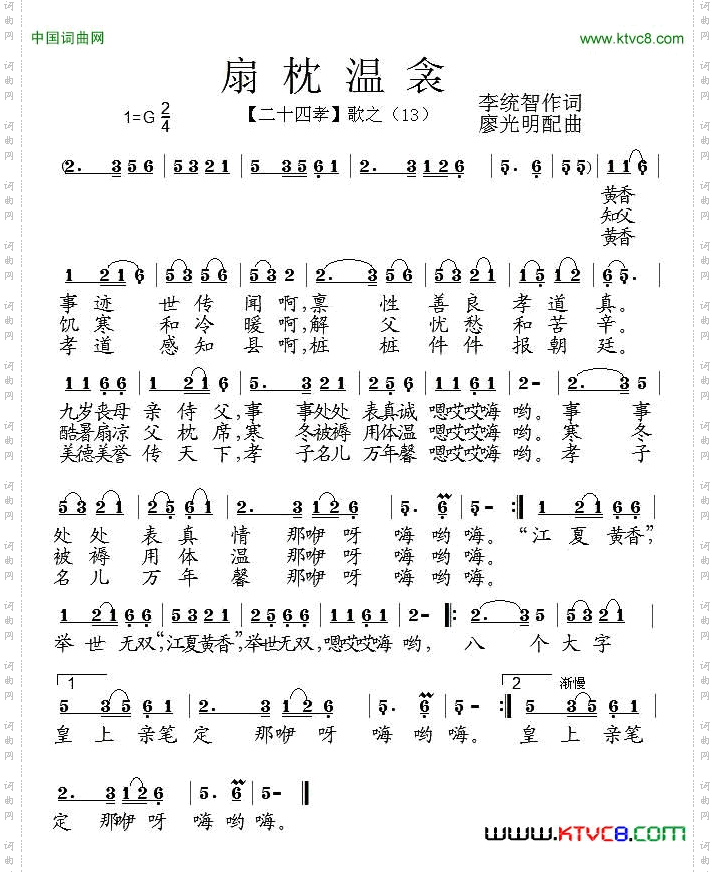 中国词曲网
www.ktvc8.com
扇枕温衾
1=G 2/4
【二十四孝】歌之（13）
李统智作词
廖光明配曲
(2. 3 5 6 | 5 3 2 1 | 5. 3 5 1 6 | 2. 3 1 2 6 | 5. 6 | 5 5) | 1 1 6 |
黄香
知父
黄香
1 2 1 6 | 5 3 5 6 | 5 3 2 | 2. 3 5 6 | 5 3 2 1 | 1 5 1 2 | 6 5. |
事迹世传闻啊,禀性善良孝道真。
饥寒和冷暖啊,解父忧愁和苦辛。
孝道感知县啊,桩桩件件报朝廷。
1 1 6 6 | 1 2 1 6 | 5. 3 | 2 3 2 1 | 2 5 6 1 | 1 1 6 1 | 2 - | 2. 3 5 |
九岁丧母亲侍父,事事处处表真诚嗯哎哎嗨哟。事事
酷暑扇凉父枕席,寒冬被褥用体温嗯哎哎嗨哟。寒冬
美德美誉传天下,孝子名儿万年馨嗯哎哎嗨哟。孝子
5 3 2 1 | 2 5 6 1 | 2. 3 | 1 2 6 | 5. 6 | 5 - :‖ 1 2 1 | 6 6 |
处处表真情那咿呀嗨哟嗨。“江夏黄香”,
被褥用体温那咿呀嗨哟嗨。
名儿万年馨那咿呀嗨哟嗨。
1 2 1 6 6 | 5 3 2 1 | 2 5 6 6 | 1 1 6 1 | 2 - ‖: 2. 3 5 | 5 3 2 1 |
举世无双”,“江夏黄香”,举世无双,嗯哎哎嗨哟,八个大字
1
2
渐慢
5 3 5 6 1 | 2. 3 | 1 2 6 | 5. 6 | 5 - :‖ 5 3 5 6 1 |
皇上亲笔定那咿呀嗨哟嗨。皇上亲笔
2. 3 1 2 6 | 5. 6 | 5 - ‖
定那咿呀嗨哟嗨。
www.KTVC8.com